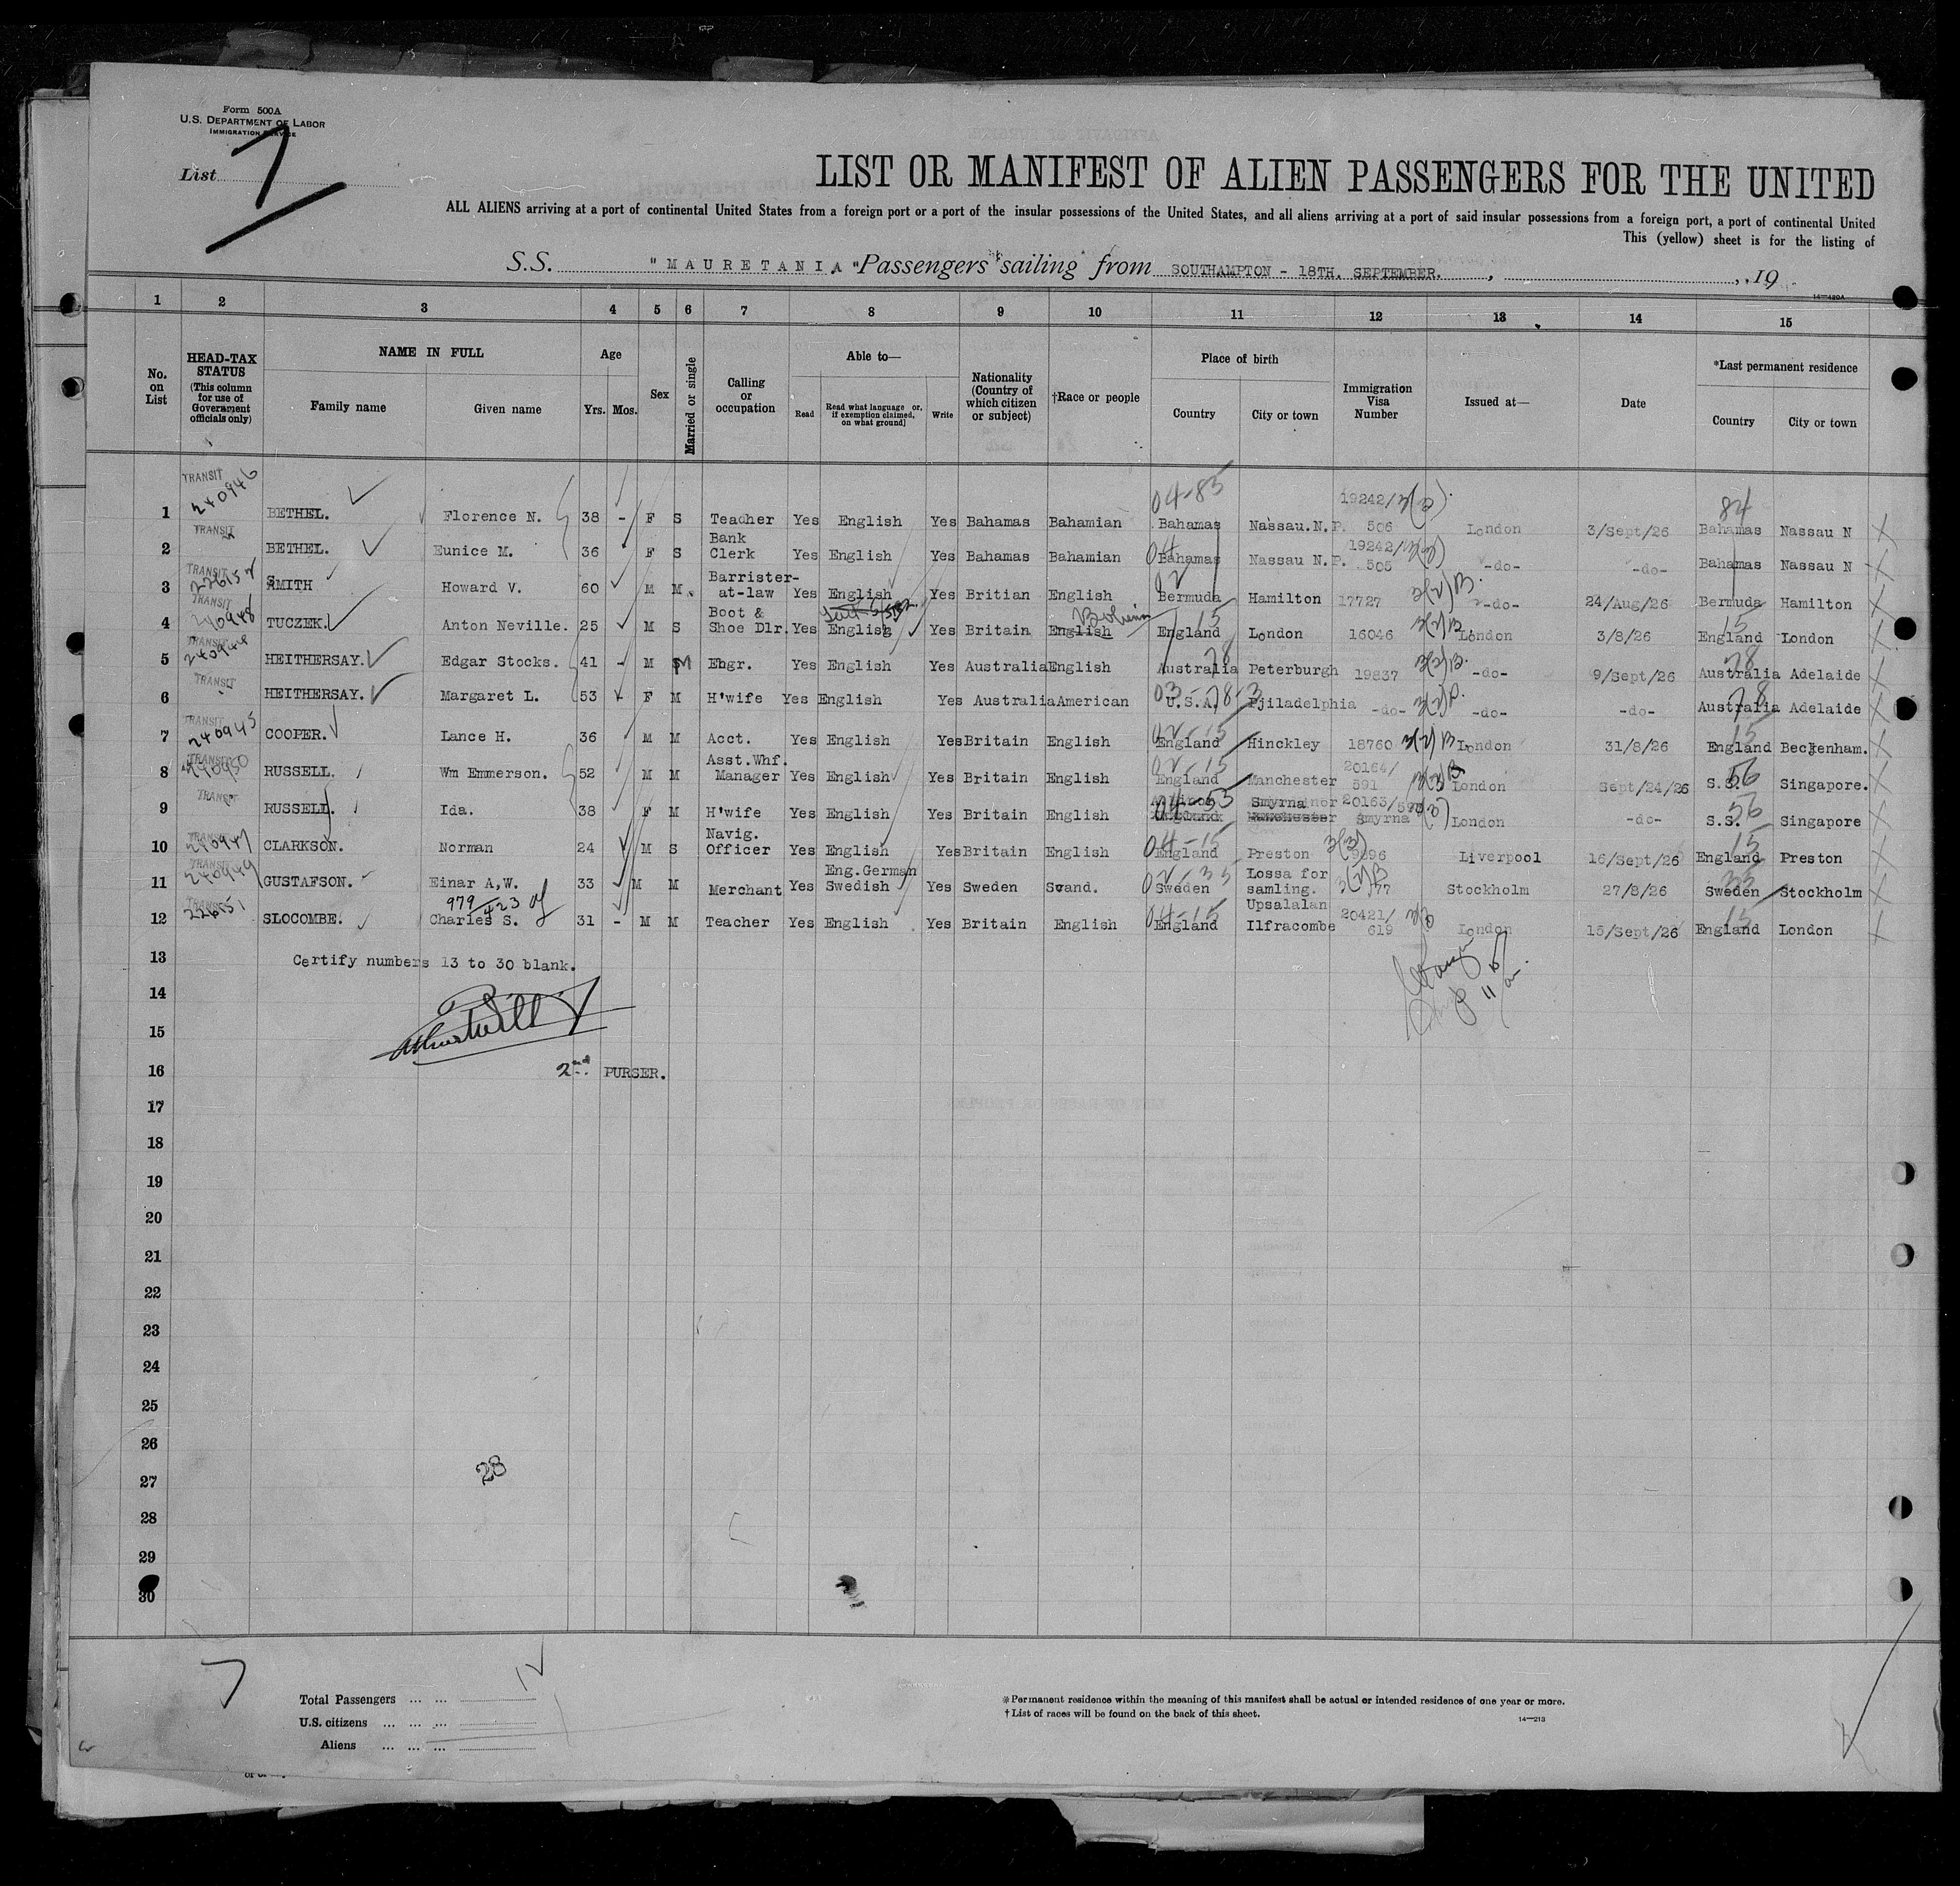 Form 500A
U.S. DEPARTMENT OF LABOR
IMMIGRATION SERVICE
List 7
LIST OR MANIFEST OF ALIEN PASSENGERS FOR THE UNITED
ALL ALIENS arriving at a port of continental United States from a foreign port or a port of the insular possessions of the United States, and all aliens arriving at a port of said insular possessions from a foreign port, a port of continental United
This (yellow) sheet is for the listing of
S.S. "MAURETANIA." Passengers sailing from SOUTHAMPTON - 18TH. SEPTEMBER. , , 19
14—420A
1 2 3 4 5 6 7 8 9 10 11 12 13 14 15
No. on List
HEAD-TAX STATUS (This column for use of Government officials only)
NAME IN FULL
Family name Given name
Age
Yrs. Mos.
Sex
Married or single
Calling or occupation
Able to—
Read Read what language [or, if exemption claimed, on what ground] Write
Nationality (Country of which citizen or subject)
†Race or people
Place of birth
Country City or town
Immigration Visa Number
Issued at—
Date
*Last permanent residence
Country City or town
1 TRANSIT 240946 BETHEL. Florence N. 38 - F S Teacher Yes English Yes Bahamas Bahamian 04-83 Bahamas Nassau.N.P. 19242/ 506 3(2). London 3/Sept/26 84 Bahamas Nassau N X
2 TRANSIT BETHEL. Eunice M. 36 F S Bank Clerk Yes English Yes Bahamas Bahamian 04 Bahamas Nassau N.P. 19242/ 505 3(3) -do- -do- Bahamas Nassau N X
3 TRANSIT SMITH Howard V. 60 M M. Barrister-at-law Yes English Yes Britian English 02 Bermuda Hamilton 17727 3(2)B. -do- 24/Aug/26 Bermuda Hamilton X
4 TRANSIT 240948 TUCZEK. Anton Neville. 25 M S Boot & Shoe Dlr. Yes English Yes Britain English 15 England London 16046 3(2)B London 3/8/26 15 England London X
5 TRANSIT 240944 HEITHERSAY. Edgar Stocks. 41 - M M Engr. Yes English Yes Australia English 78 Australia Peterburgh 19837 3(2)B. -do- 9/Sept/26 78 Australia Adelaide X
6 TRANSIT HEITHERSAY. Margaret L. 53 - F M H'wife Yes English Yes Australia American 03-78-3 U.S.A. Pjiladelphia -do- 3(2)B. -do- -do- 78 Australia Adelaide X
7 TRANSIT 240945 COOPER. Lance H. 36 M M Acct. Yes English Yes Britain English 02-15 England Hinckley 18760 3(2)B London 31/8/26 15 England Beckenham. X
8 TRANSIT 240950 RUSSELL. Wm Emmerson. 52 M M Asst.Whf. Manager Yes English Yes Britain English 02-15 England Manchester 20164/ 591 3(2)B London Sept/24/26 56 S.S. Singapore. X
9 TRANSIT RUSSELL. Ida. 38 F M H'wife Yes English Yes Britain English 04-53 Smyrna 20163/590 Smyrna (3) London -do- 56 S.S. Singapore X
10 TRANSIT 240947 CLARKSON. Norman 24 M S Navig. Officer Yes English Yes Britain English 04-15 England Preston 3(3) Liverpool 16/Sept/26 15 England Preston X
11 TRANSIT 240949 GUSTAFSON. Einar A,W. 33 M M Merchant Yes Eng.German Swedish Yes Sweden Scand. 02-35 Sweden Lossa for samling. Upsalalan 3(2)B 77 Stockholm 27/8/26 35 Sweden Stockholm X
979 423
12 TRANSIT 226151 SLOCOMBE. Charles S. 31 - M M Teacher Yes English Yes Britain English 04-15 England Ilfracombe 20421/ 619 London 15/Sept/26 15 England London X
13 Certify numbers 13 to 30 blank.
14
15
16 2nd PURSER.
17
18
19
20
21
22
23
24
25
26
27 28
28
29
30
7
Total Passengers ... ... 12
U.S. citizens ... ... ...
Aliens ... ... ...
*Permanent residence within the meaning of this manifest shall be actual or intended residence of one year or more.
†List of races will be found on the back of this sheet.
14—213